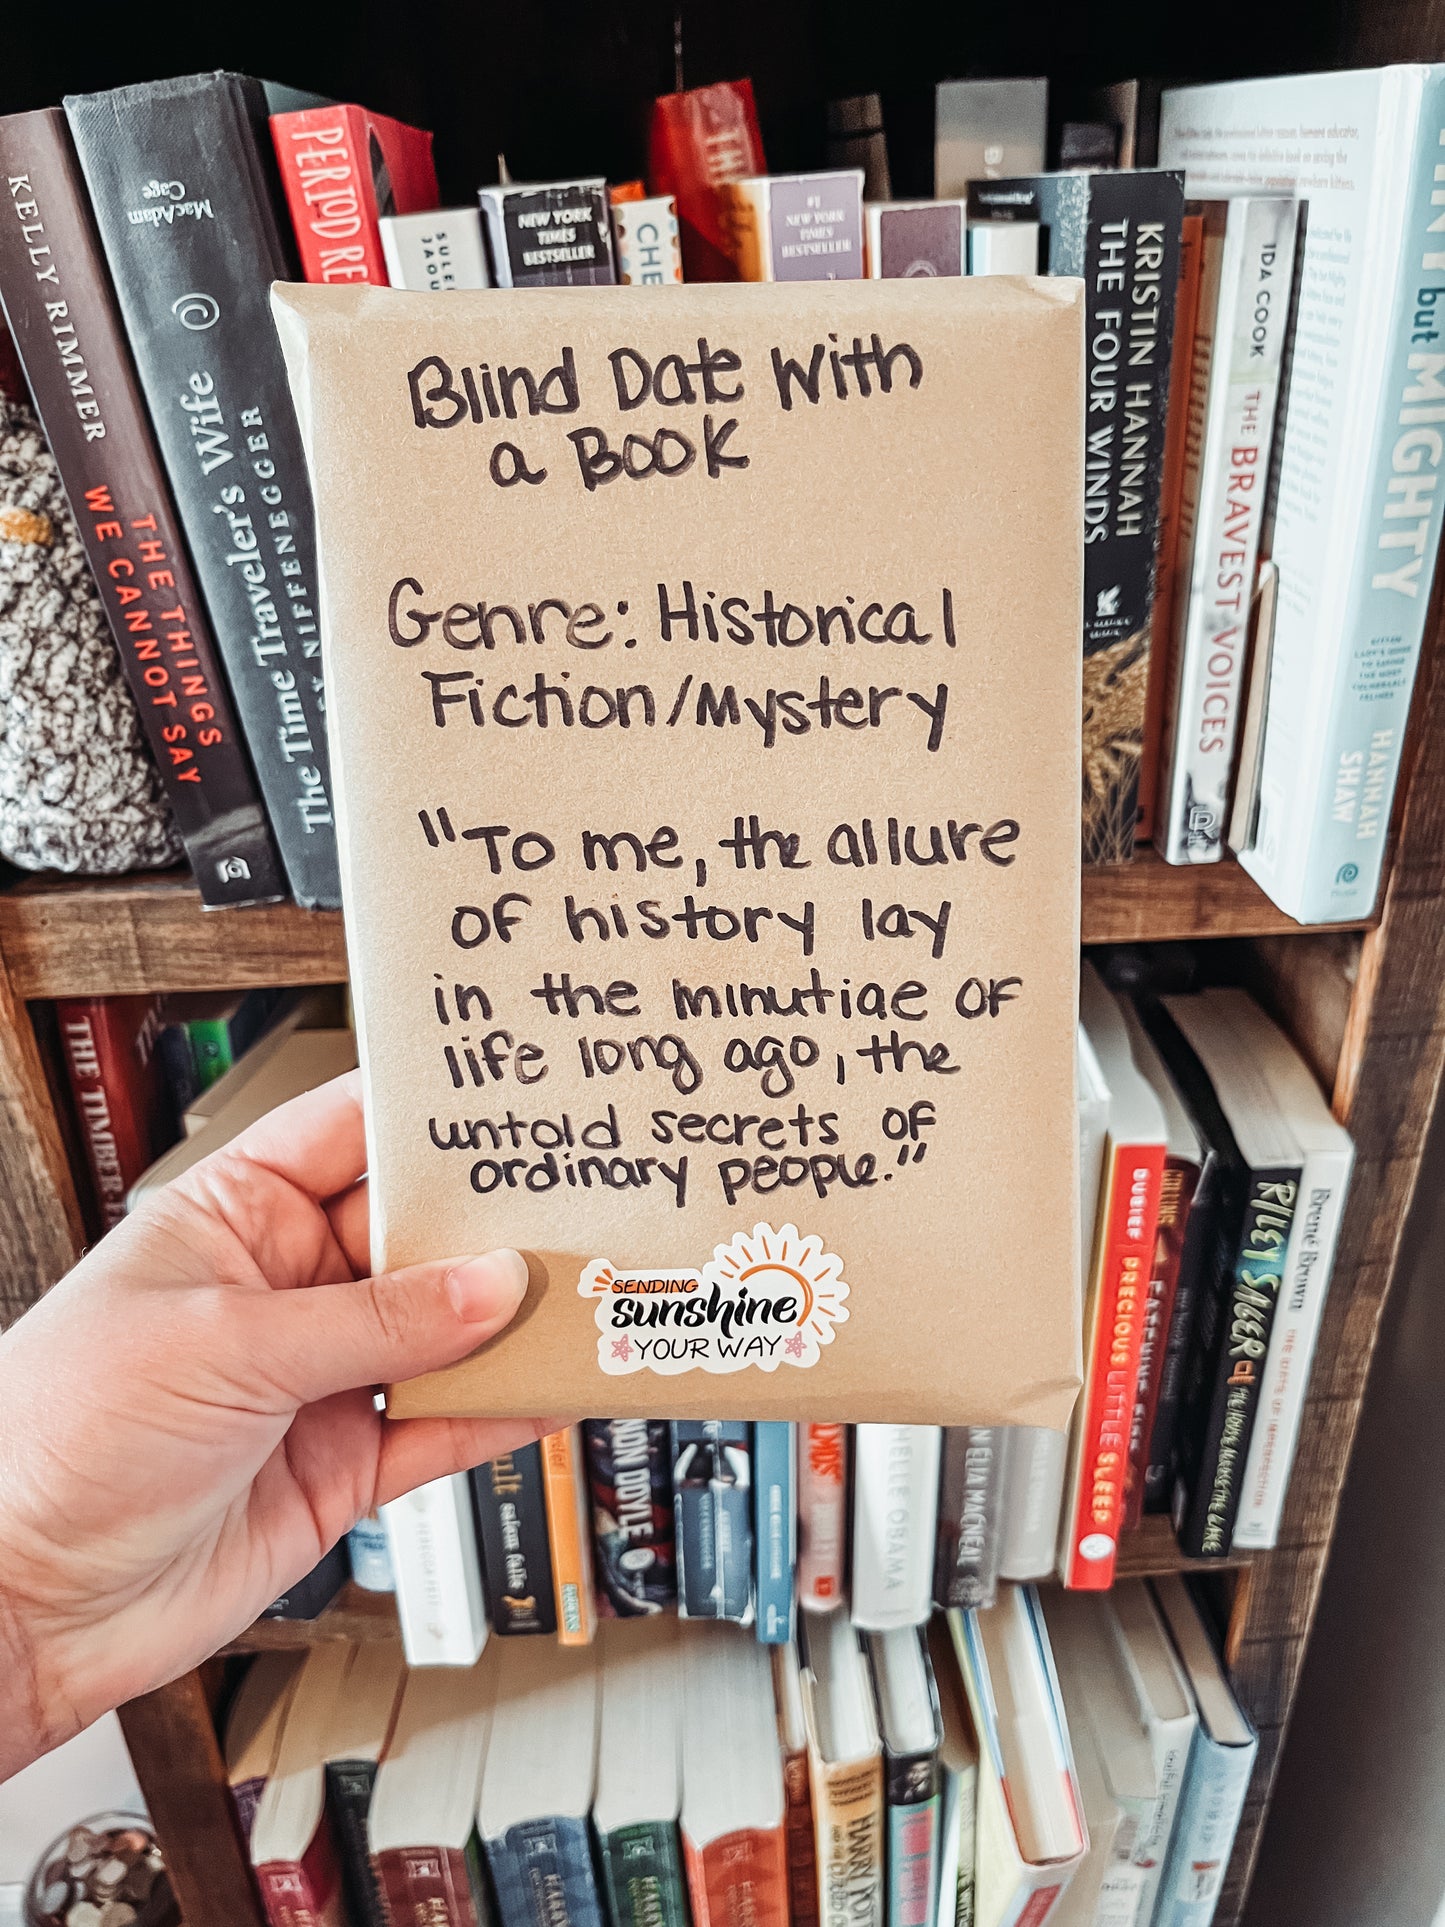 Blind Date With
a Book
Genre: Historical
Fiction/Mystery
"To me, the allure
of history lay
in the minutiae of
life long ago, the
untold secrets of
ordinary people."
SENDING
sunshine
YOUR WAY
KELLY RIMMER
THE THINGS
WE CANNOT SAY
MacAdam
Cage
The Time Traveler's Wife
NIFFENEGGER
PERIOD
NEW YORK
TIMES
BESTSELLER
#1
NEW YORK
TIMES
BESTSELLER
KRISTIN HANNAH
THE FOUR WINDS
IDA COOK
THE BRAVEST VOICES
but MIGHTY
HANNAH
SHAW
THE TIMBER
DUBIEF PRECIOUS LITTLE SLEEP
RILEY SAGER
Brené Brown
DOYLE
OBAMA
MACNEAL